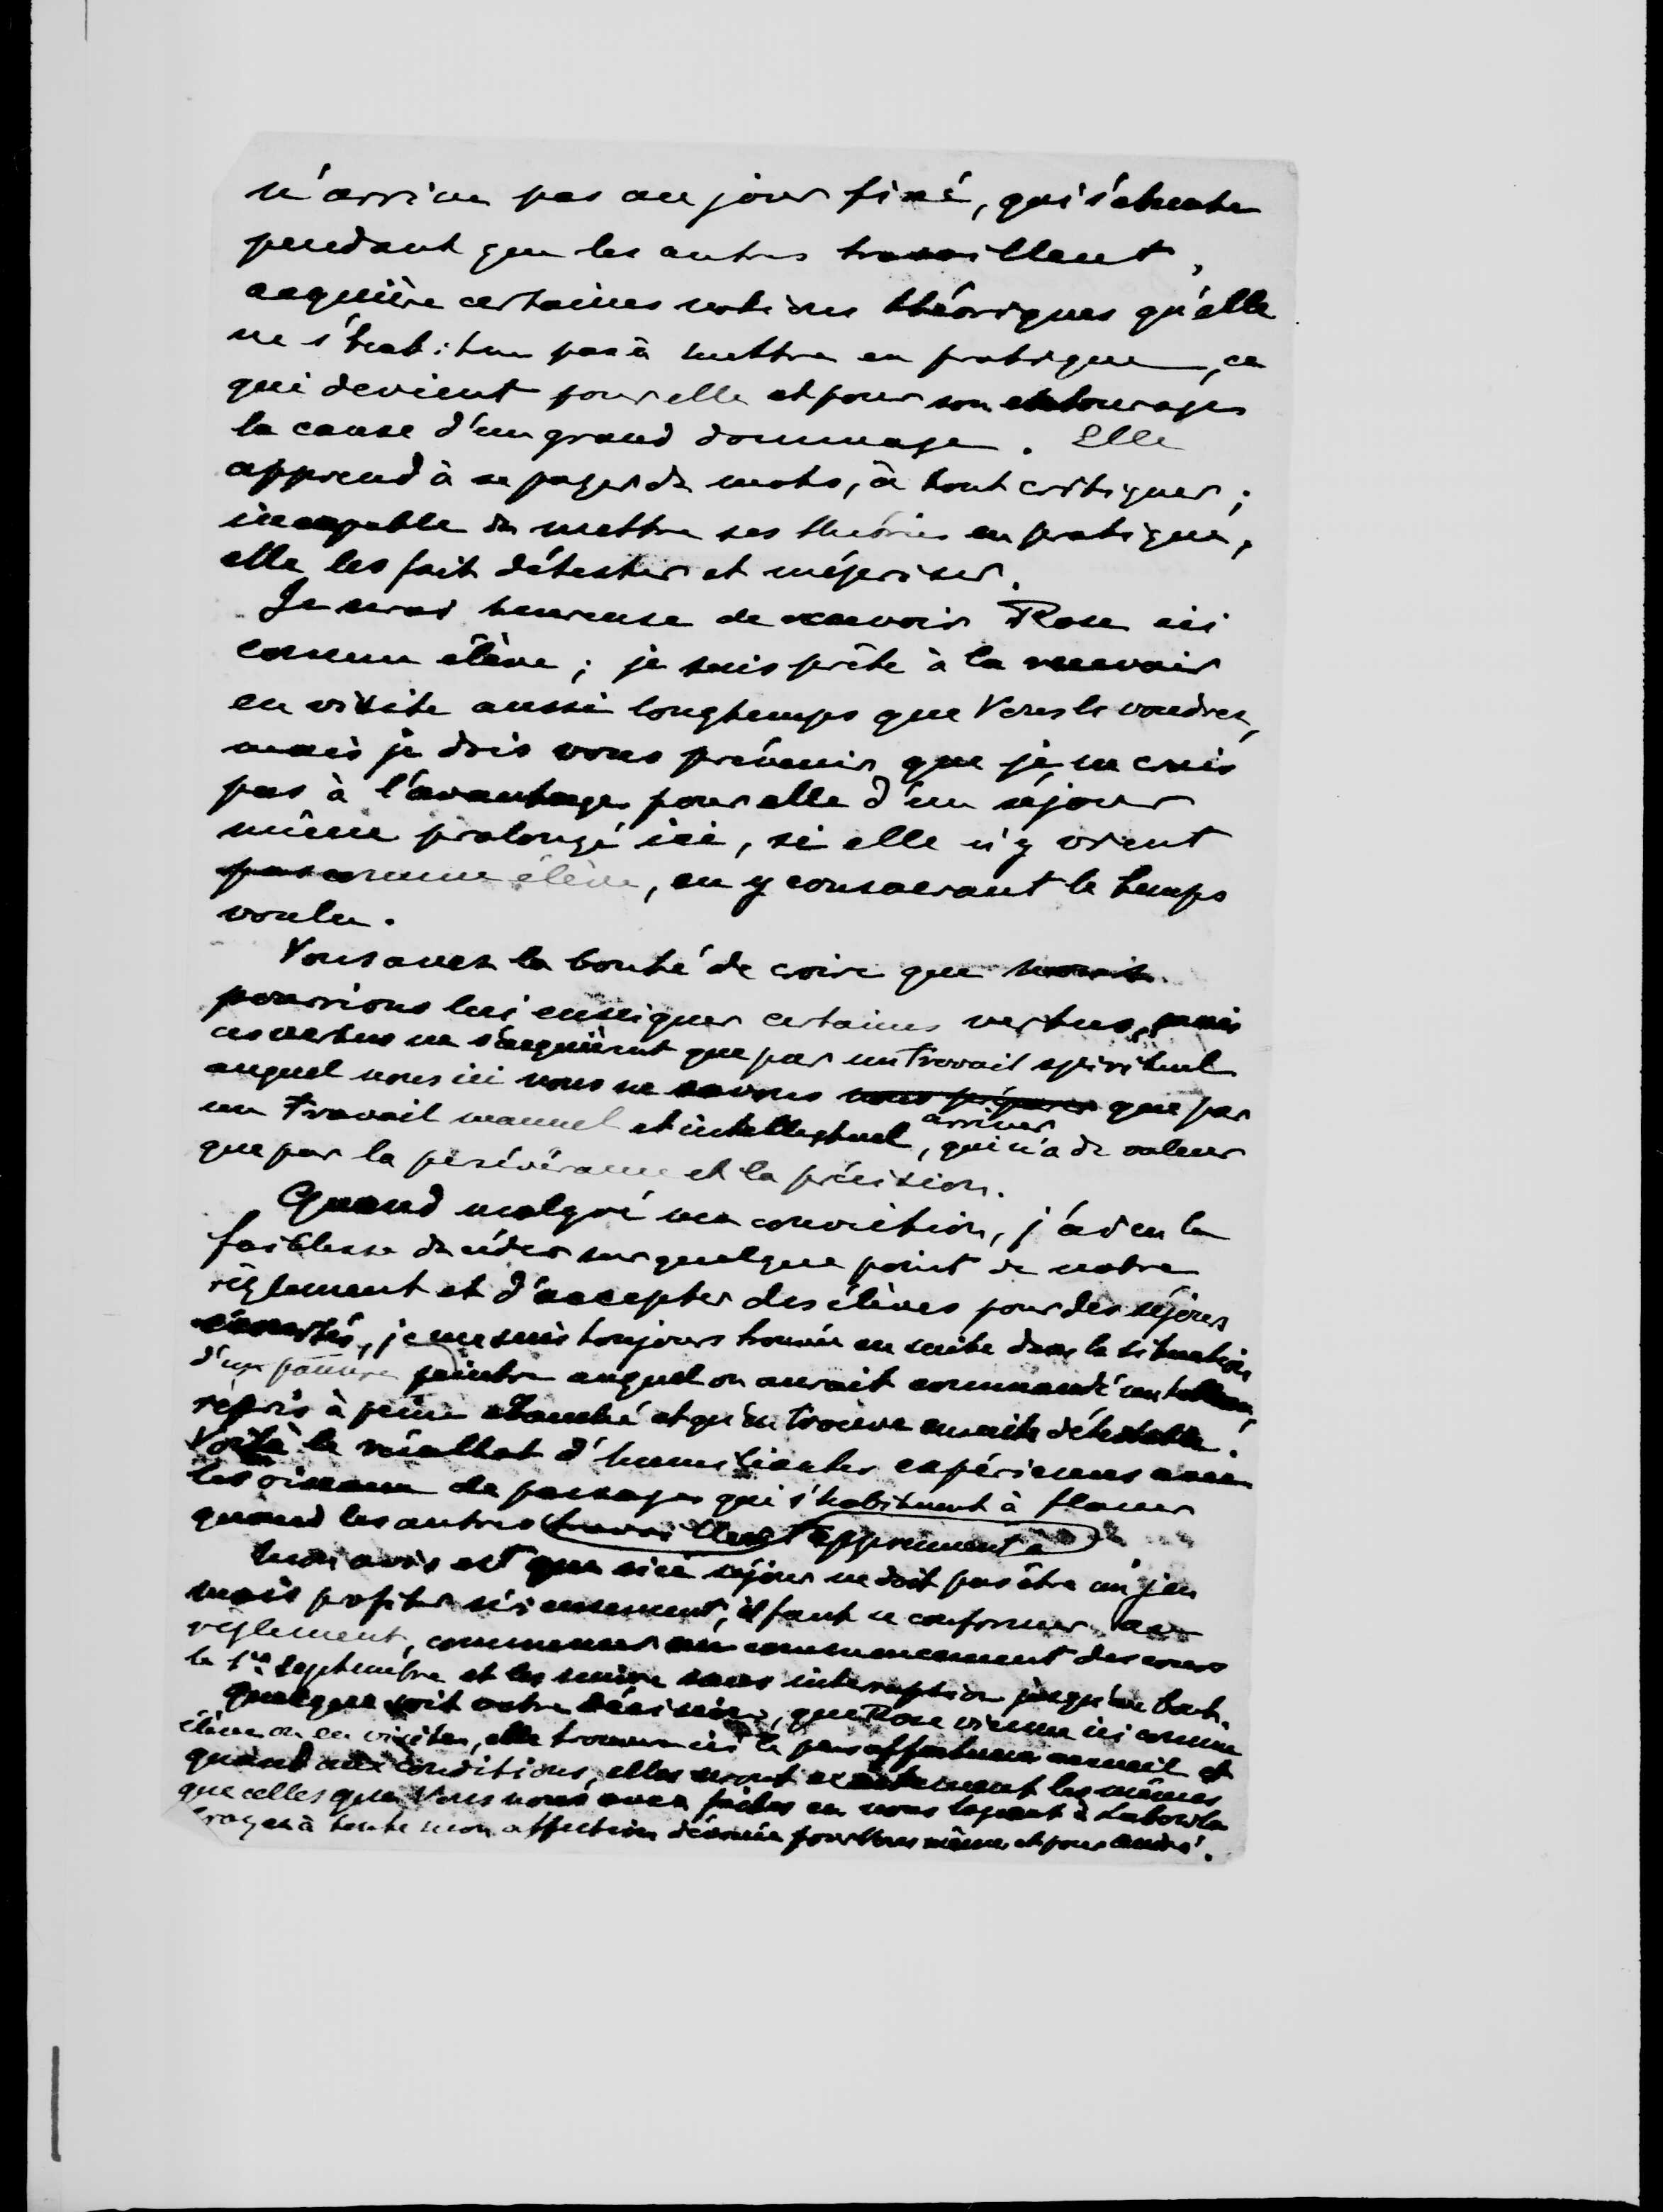 n'arrive pas au jour fixé, qui s'absente
pendant que les autres travaillent,
acquière certaines notions théoriques qu'elle
ne s'habitue pas à mettre en pratique, ce
qui devient pour elle et pour son entourage
la cause d'un grand dommage. Elle
apprend à se payer de mots, à tout critiquer;
incapable de mettre ses théories en pratique,
elle les fait détester et mépriser.
Je serai heureuse de recevoir Rose ici
comme élève; je suis prête à la recevoir
en visite aussi longtemps que Vous le voudrez,
mais je dois vous prévenir que je ne crois
pas à l'avantage pour elle d'un séjour
même prolongé ici, si elle n'y vient
pas comme élève, en y consacrant le temps
voulu.
Vous avez la bonté de croire que
pourrions lui enseigner certaines vertus, mais
ces vertus ne s'acquièrent que par un travail spirituel
auquel nous ici nous ne savons nous préparer que par
arriver
un Travail manuel et intellectuel, qui n'a de valeur
que par la persévérance et la précision.
Quand malgré ma conviction, j'ai eu la
faiblesse de céder sur quelque point de notre
règlement et d'accepter des élèves pour des séjours
écourtés, je me suis toujours trouvée ensuite dans la situation
d'un pauvre peintre auquel on aurait commandé un tableau,
repris à peine ébauché et qu'on trouve ensuite détestable.
Voilà le résultat d'humiliantes expériences avec
les oiseaux de passage qui s'habituent à flaner
quand les autres travaillent apprennent à
Mon avis est que si ce séjour ne doit pas être un jeu
mais profiter sérieusement, il faut se conformer au
règlement, commencer au commencement des cours
le 1er septembre et les suivre sans interruption jusqu'au bout.
Quelque soit votre décision, que Rose vienne ici comme
élève ou en visite, elle trouvera ici le plus affectueux accueil et
quant aux conditions, elles seront exactement les mêmes
que celles que Vous nous avez faites en nous logeant à
Croyez à toute mon affection dévouée pour Vous même et pour André.